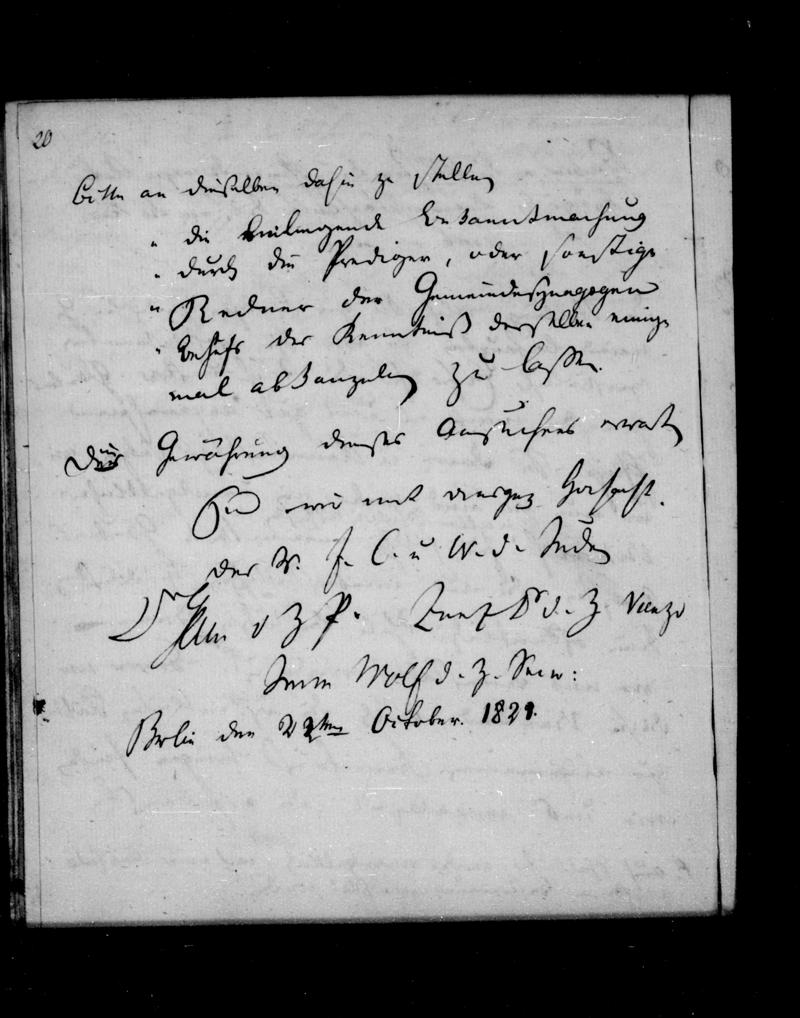 20
bitte an dieselben dahin zu stellen
" die beiliegende Bekanntmachung
" durch die Prediger, oder sonstige
" Redner der Gemeindesynagogen
" behufs der Kenntniß derselben einige
mal abkanzeln zu lassen.
Die Gewährung dieses Ansuchens erwart
wir mit Hochacht.
der V. f. C. u W. d. Juden
Dr Gans d z P. Zunz Dr d. z Vicepr
Wolf d. z. Secr:
Berlin den 22ten October. 1821.